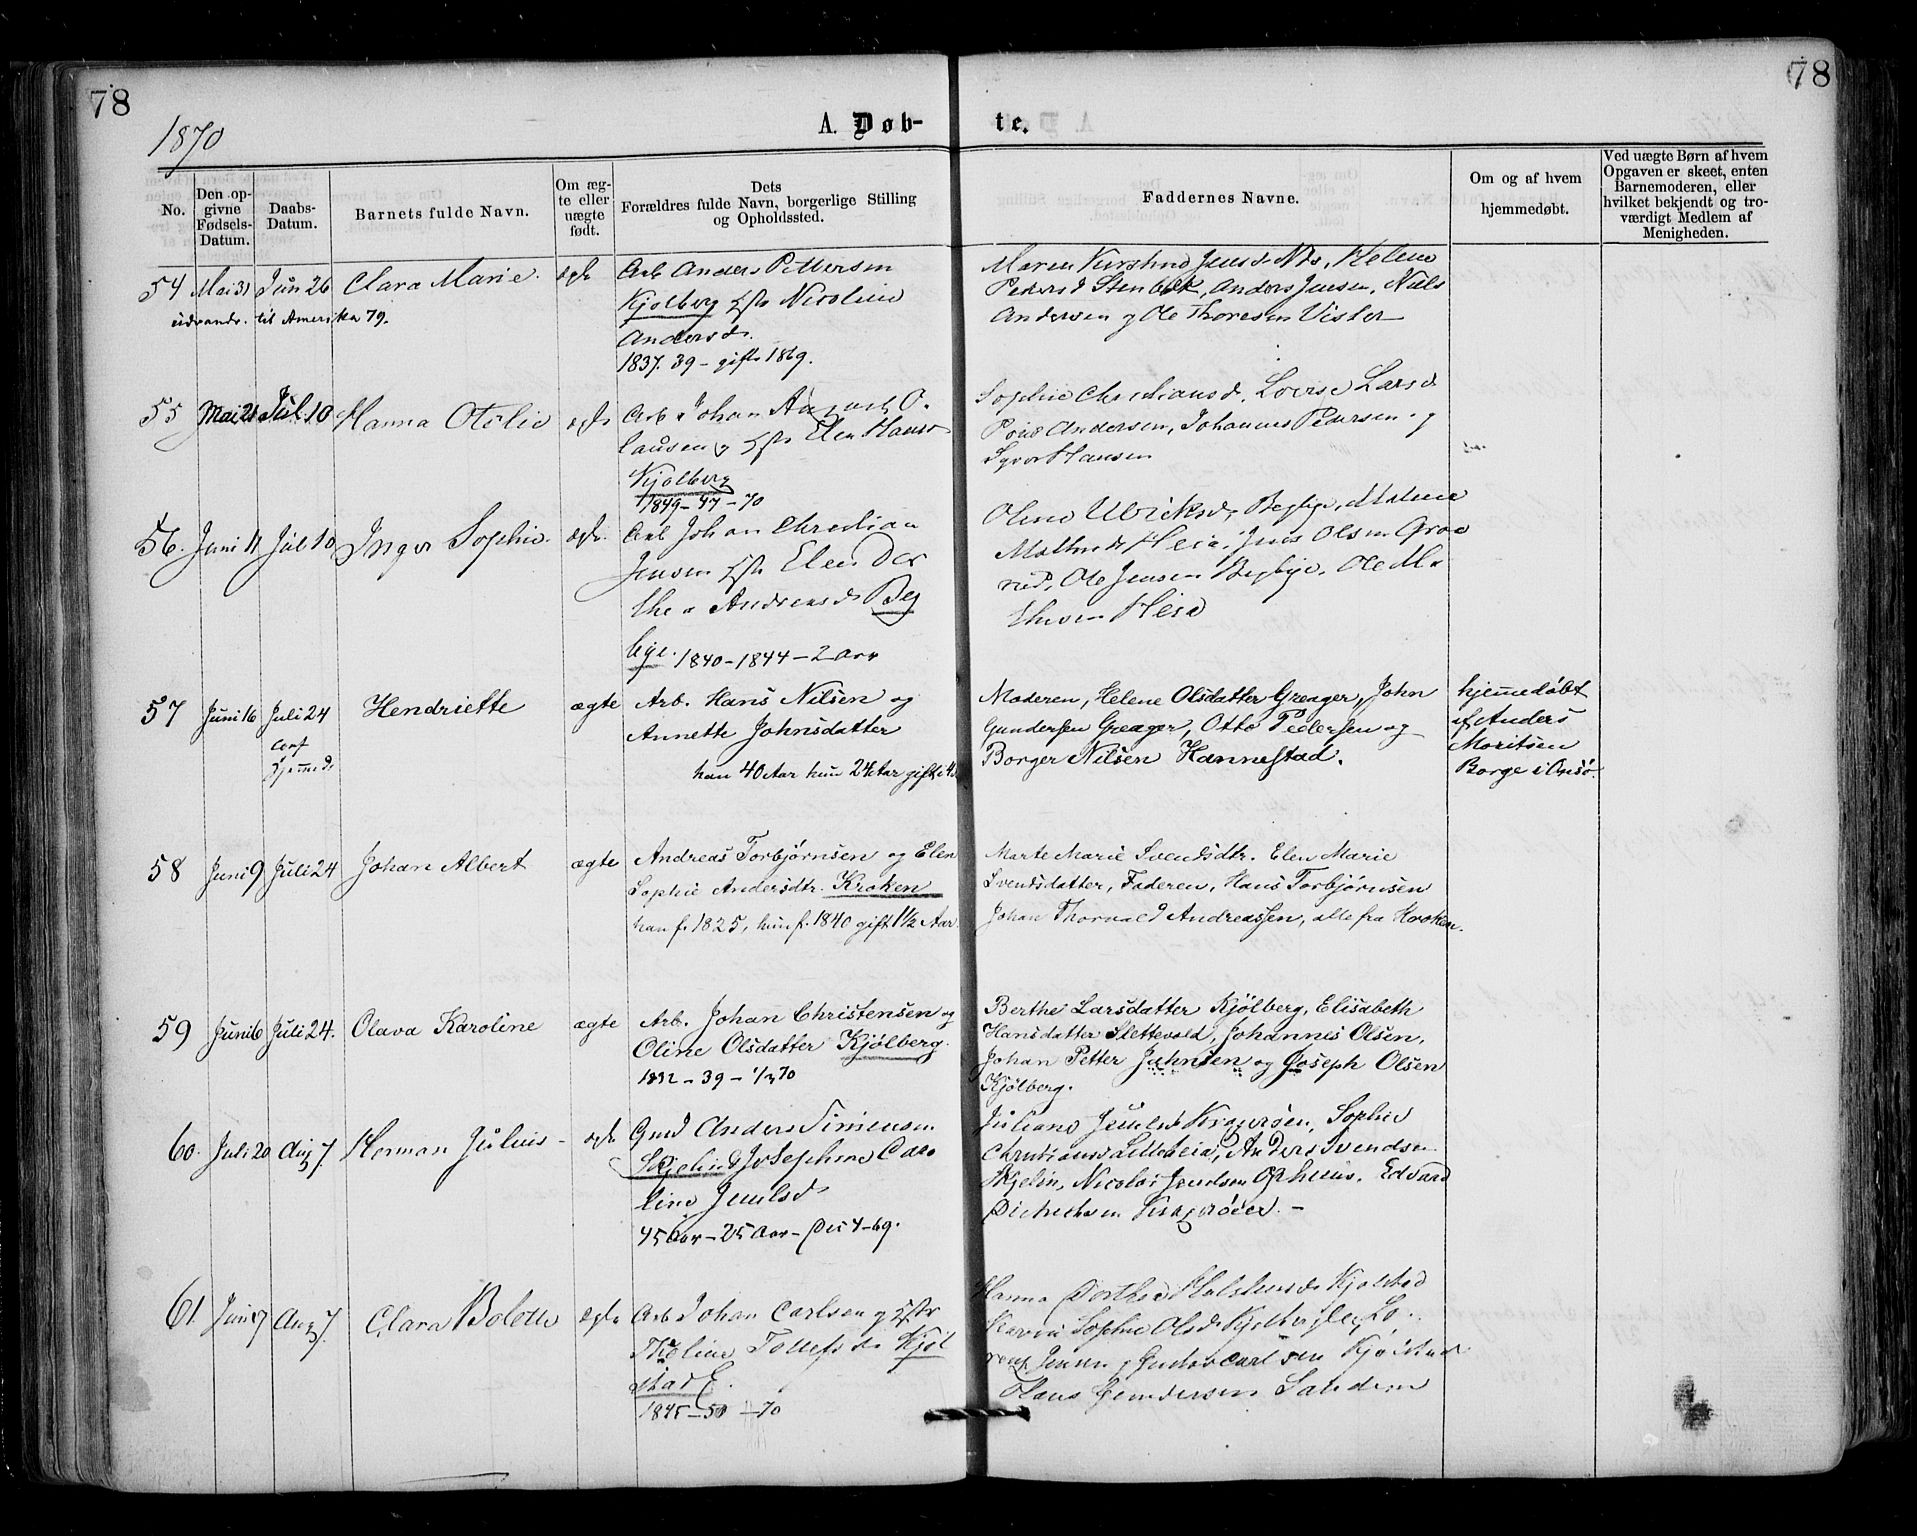 78
78
1870
A. Døb-
te.
No.
Den op-
givne
Fødsels-
Datum.
Daabs-
Datum.
Barnets fulde Navn.
Om æg-
te eller
uægte
født.
Dets
Forældres fulde Navn, borgerlige Stilling
og Opholdssted.
Faddernes Navne.
Om og af hvem
hjemmedøbt.
Ved uægte Børn af hvem
Opgaven er skeet, enten
Barnemoderen, eller
hvilket bekjendt og tro-
værdigt Medlem af
Menigheden.
54 Mai 31 Jun 26 Clara Marie. ægte Arb Anders Pettersen
Kjølberg Nicoline
Andersd.
1837. 39 – gift 1869.
udvandr. til Amerika 79.
Maren Jensd Helene
Pedersd Stenbek, Anders Jensen, Nils
Andersen g Ole Thoresen Vister
55 Mai 21 Jul. 10 Hanna Otilie ægte Arb Johan August O.
lausen g Elen Hansd
Kjølberg
1849 – 47 – 70
Sophie Christiansd, Lovise Larsd
Andersen, Johannes Pedersen g
Syver Hansen
56. Juni 11 Jul 10 Inger Sophie. ægte. Arb Johan Christian
Jensen Elen Dor
thea Andreasd Beg
bye. 1840 – 1844 – 2 Aar
Oline Ulricksd, Begbye, Malene
Mathisd Heie, Jens Olsen Graa
rud, Ole Jensen Begbye, Ole Ma
thisen Heie
57 Juni 16 Juli 24 Hendriette ægte Arb. Hans Nilsen og
Annette Johnsdatter
han 40 Aar hun 24 Aar gift
conf
hjemmed.
Moderen, Helene Olsdatter Greager, John
Gundersen Greager, Otto Pedersen og
Borger Nilsen Hannestad.
hjemmedøbt
af Anders
Moritsen
Borge i Onsø.
58 Juni 9 Juli 24 Johan Albert ægte Andreas Torbjørnsen og Elen
Sophie Andersdtr. Kroken
han f. 1825, hun f. 1840 gift 1 1/2 Aar.
Marte Marie Svendsdtr. Elen Marie
Svendsdatter, Faderen, Hans Torbjørnsen
Johan Thorvald Andreassen, alle fra Kroken.
59 Juni 6 Juli 24. Olava Karoline ægte Arb. Johan Christensen og
Oline Olsdatter Kjølberg.
1832 – 39 – 1/3 70
Berthe Larsdatter Kjølberg, Elisabeth
Hansdatter Slettevold, Johannes Olsen,
Johan Petter Jahnsen og Joseph Olsen
Kjølberg.
60. Juli 20 Aug 7. Herman Julius – ægte Gmd Anders Simensen
Skjelin g Josephine Caro
line Jensd
45 Aar – 25 Aar – Dec 4 – 69.
Juliane Kragerøen, Sophie
Christiansd Lilleheia, Anders Svendsen
Skjelin, Nicolai Edvard
Diedrichsen Kragerøen. –
61. Juni 17 Aug 7 Clara Bolette ægte Arb Johan Carlsen g
Tholine Tollefsd Kjøl
stad E.
1845 – 50 – 70
Hanna Dorthea Kjølstad
Karen Sophie Olsd Kjølberg, Lo
rentz Jensen g Gustav Carlsen Kjølstad
Claus Gundersen Sandem